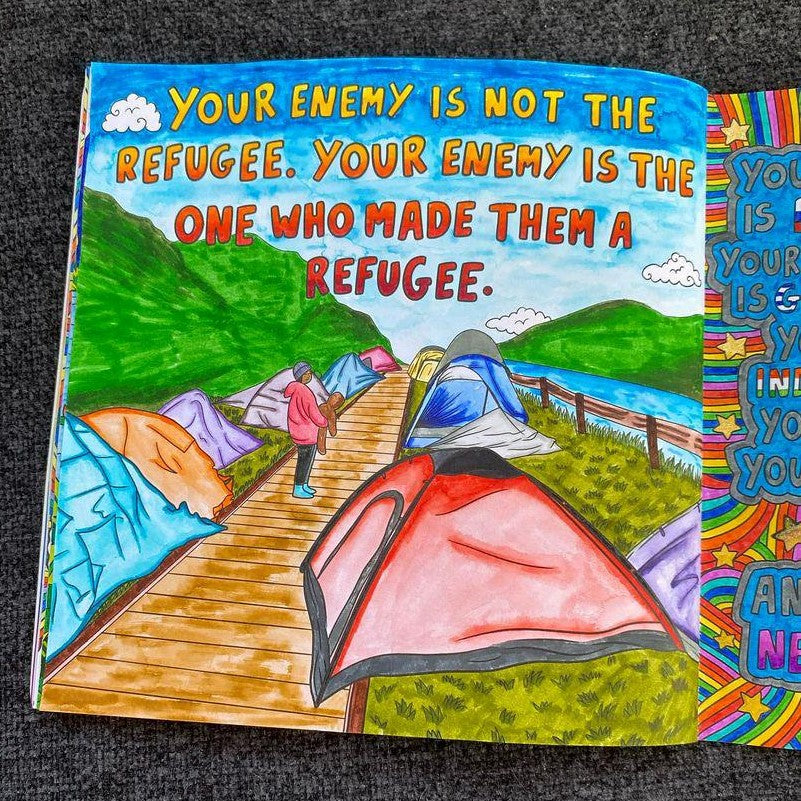 YOUR ENEMY IS NOT THE
REFUGEE. YOUR ENEMY IS THE
ONE WHO MADE THEM A
REFUGEE.
IS
YOUR
IS